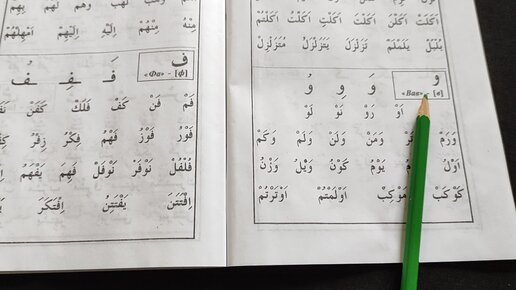 اَكَلْتَ اَكَلْتِ اَكَلْتُ اَكَلْتُمْ
تَزَلْزَلَ يَتَزَلْزَلُ مُتَزَلْزِلْ
و وَ وِ وُ
«Вав» - [в]
اَوْ رَوْ نَوْ لَوْ
وَرَمْ وَمَنْ وَلَنْ وَلَمْ وَكَمْ
اَوْلُ يَوْمُ كَوْنُ وَيْلُ وَزْنُ
كَوْكَبْ مَوْكِبْ اَوْلَمْتُمْ اَوْتَرْتُمْ
مِنْهُ مِنْهُمْ اِلَيْهِ اِلَيْهِمْ اَمْهِلْهُمْ
ف فَـ ـفِـ ـفُ
«Фа» - [ф]
فَمْ فَنْ كَفْ فَلَكْ كَفَنْ
فَوْرُ فَوْزُ فَهْمُ فِكْرُ زِفْرُ
فُلْفُلْ نَوْفَرْ نَوْفَلْ فَهِمَ يَفْهَمُ
اِفْتَتَنَ يَفْتَتِنُ اِفْتَكَرَ